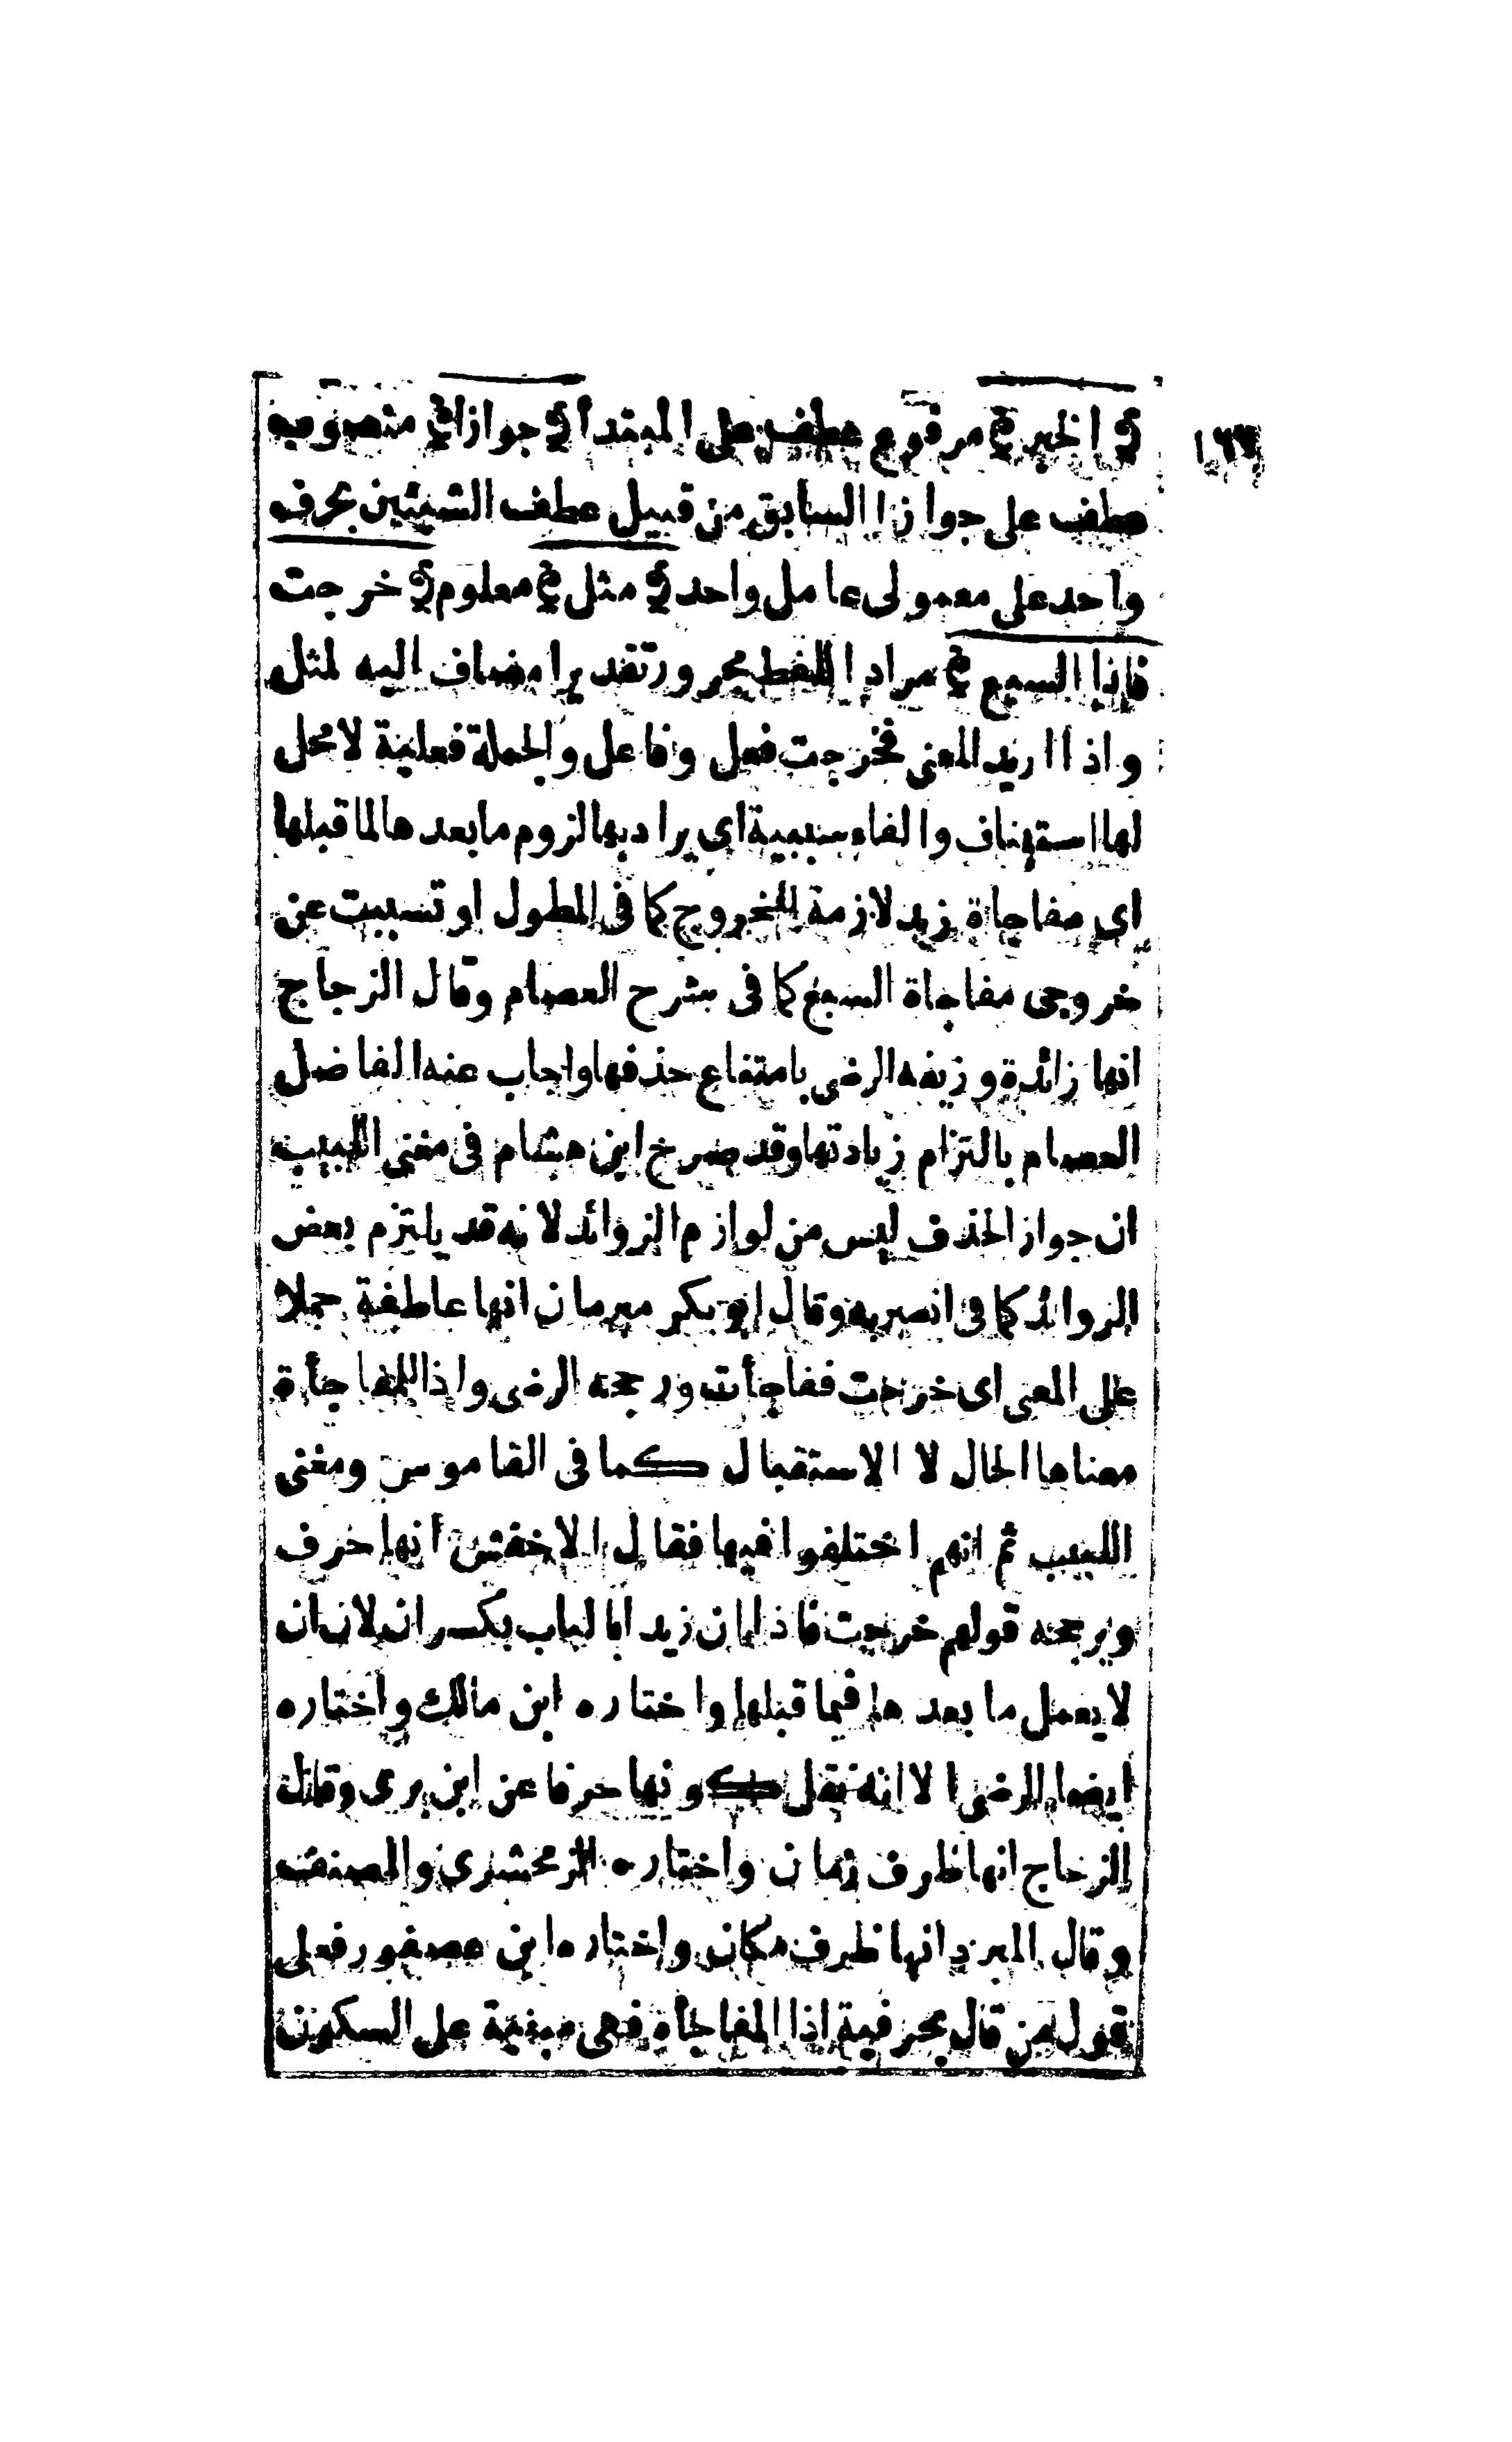 ﴿الخبر﴾ مرفوع عطف على المبتدأ ﴿جوازا﴾ منصوب
عطف على جوازا السابق من قبيل عطف الشيئين بحرف
واحد على معمولى عامل واحد ﴿مثل﴾ معلوم ﴿خرجت
فاذا السبع﴾ مراد اللفظ مجرور تقديرا مضاف اليه لمثل
واذا اريد المعنى فخرجت فعل وفاعل والجملة فعلية لا محل
لها استيناف والفاء سببية اى يراد بها لزوم ما بعدها لما قبلها
اى مفاجاة زيد لازمة للخروج كما فى المطول او تسببت عن
خروجى مفاجاة السبع كما فى شرح العصام وقال الزجاج
انها زائدة وزيفه الرضى بامتناع حذفها واجاب عنه الفاضل
العصام بالتزام زيادتها وقد صرح ابن هشام فى مغنى اللبيب
ان جواز الحذف ليس من لوازم الزوائد لانه قد يلتزم بعض
الزوائد كما فى انصر به وقال ابو بكر مبرمان انها عاطفة حملا
على المعنى اى خرجت ففاجأت ورجحه الرضى واذا للمفاجأة
معناها الحال لا الاستقبال كما فى القاموس ومغنى
اللبيب ثم انهم اختلفوا فيها فقال الاخفش انها حرف
ويرجحه قولهم خرجت فاذا ان زيدا بالباب بكسر ان لان ان
لا يعمل ما بعدها فيما قبلها واختاره ابن مالك واختاره
ايضا الرضى الا انه نقل كونها حرفا عن ابن برى وقال
الزجاج انها ظرف زمان واختاره الزمخشرى والمصنف
وقال المبرد انها ظرف مكان واختاره ابن عصفور فعلى
قول من قال بحرفية اذا المفاجأة فهى مبنية على السكون